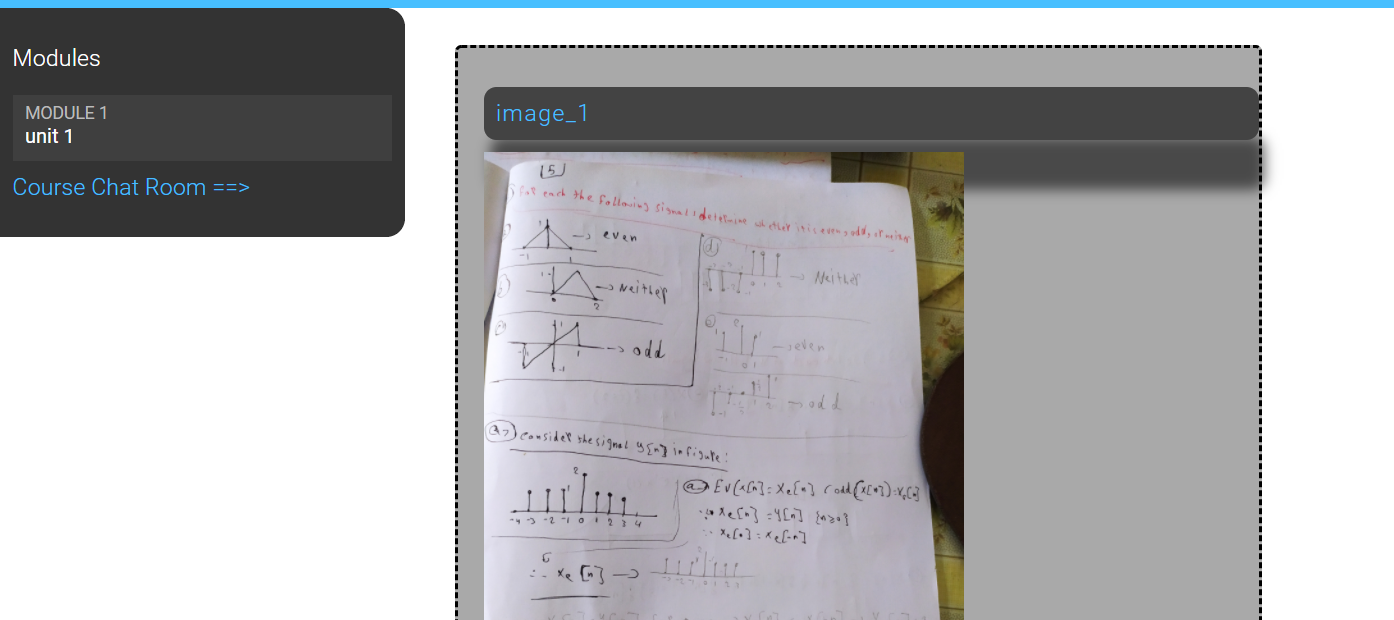 Modules
MODULE 1
unit 1
Course Chat Room ==>
image_1
5
For each the following signal: determine whether it is even, odd, or neither
1
→ even
-1
1
→ Neither
2
1
→ odd
1
-1
d
0 1 2
→ Neither
2
-1 0 1
→ even
→ odd
consider the signal y[n] in figure:
2
1
-4 -3 -2 -1 0 1 2 3 4
a Ev(x[n] = xe[n]
xe[n] = y[n] {n≥0}
∵ xe[n] = xe[-n]
∴ xe [n] →